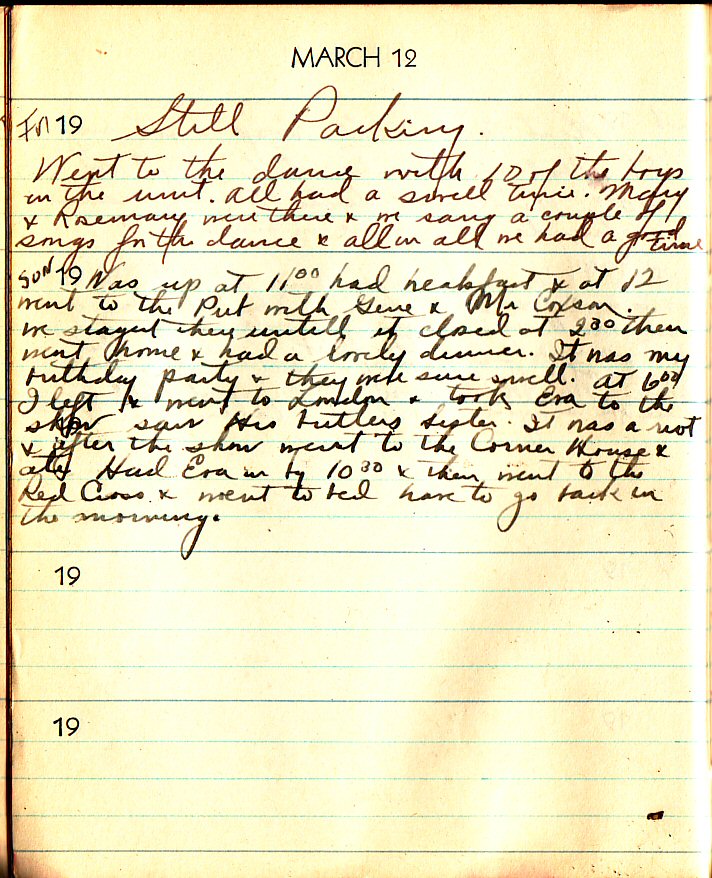 MARCH 12
Fri 19 Still Packing.
Went to the dance with 10 of the boys
in the unit. All had a swell time. Mary
& Rosemary were there & we sang a couple of
songs for the dance & all in all we had a good time
SUN 19 Was up at 11 00 had breakfast & at 12
went to the Pub with Gene & Mr Coxson.
we stayed they untill it closed at 2 30 then
went home & had a lovely dinner. It was my
birthday party & they were sure swell. at 6 00
I left & went to London & took Eva to the
show saw His butlers Sister. It was a riot
& after the show went to the Corner House &
ate Had Eva in by 10 30 & then went to the
Red Cross & went to bed have to go back in
the morning.
19
19